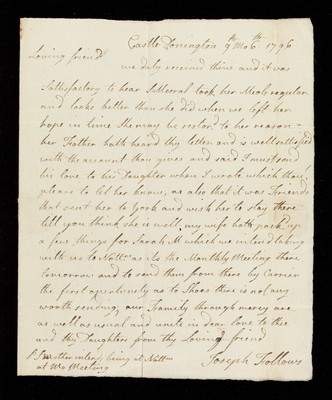 Castle Donington 9th Mo 6th 1796
Loving friend
we duly received thine and it was
Sattisfactory to hear Sall took her Meals regular
and looks better than she did when we left her
hope in time She may be restor'd to her reason -
her Father hath heard thy letter and is well sattisfied
with the account thou gives and said I must send
his love to his Daughter when I wrote which thou
please to let her know, as also that it was Friends
that sent her to York and wish her to stay there
till you think she is well, my wife hath pack'd up
a few things for Sarah M which we intend taking
with us to Nottm as is the Monthly Meeting there
tomorrow and to send them from there by Carrier
the first oportunity as to Shoes there is not any
worth sending, our Family through mercy are
as well as usual and unite in dear love to thee
and thy Daughters from thy Loving friend
Joseph Follows
P.S. mother intends being at Nottm
at Mo Meeting